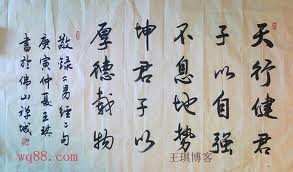 天行健君
子以自强
不息地势
坤君子以
厚德载物
敬録易經二句
庚寅仲夏王琪
書於佛山禅城
wq88.com
王琪博客